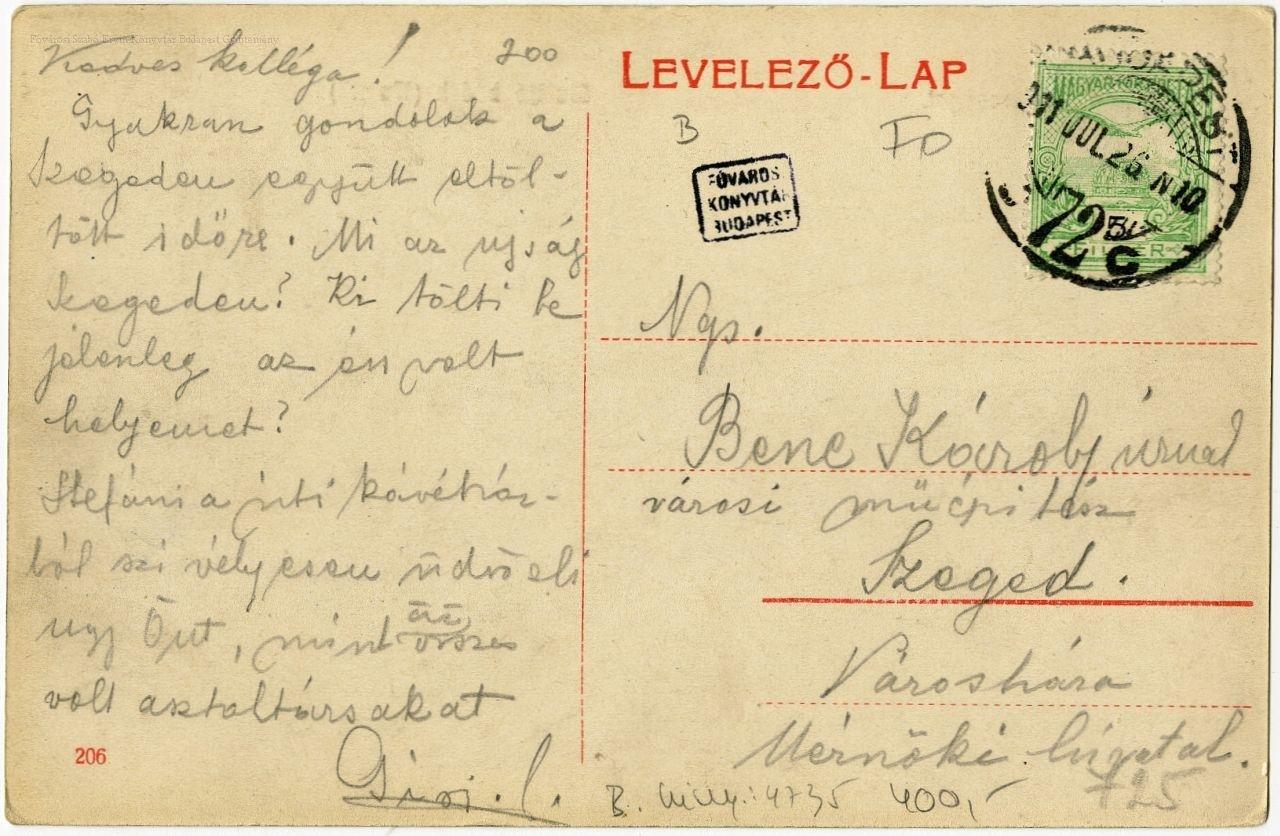 Fővárosi Szabó Ervin Könyvtár Budapest Gyűjtemény
Kedves kolléga!
200
Gyakran gondolok a
Szegeden együtt eltöl-
tött időre. Mi az ujság
Szegeden? Ki tölti be
jelenleg az én volt
helyemet?
Stefánia úti kávéház-
ból szivélyesen üdvözli
ugy Önt, mint
össze
volt asztaltársakat
206
LEVELEZŐ-LAP
B
FD
FŐVÁROSI
KÖNYVTÁR
BUDAPEST
MAGYAR
FILLÉR
BUDAPEST
911 JUL. 26 N10
72
C
Ngs.
Bene Károly úrnak
városi műépitész
Szeged.
Városháza
Mérnöki hivatal.
725
B. 4735 400,-